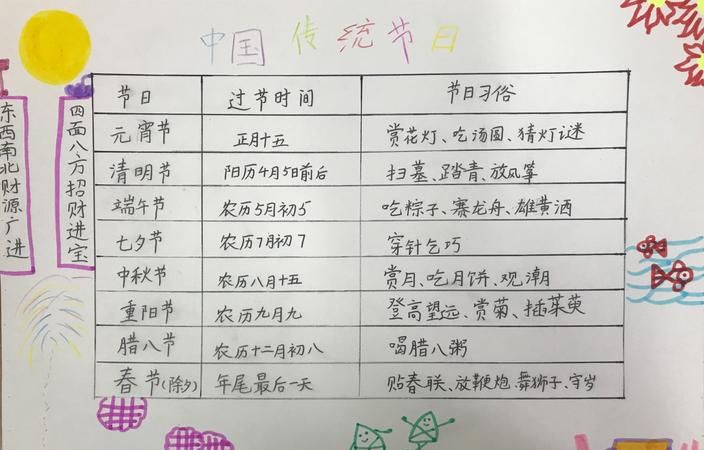 中国传统节日
东西南北财源广进
四面八方招财进宝
节日 过节时间 节日习俗
元宵节 正月十五 赏花灯、吃汤圆、猜灯谜
清明节 阳历4月5日前后 扫墓、踏青、放风筝
端午节 农历5月初5 吃粽子、赛龙舟、雄黄酒
七夕节 农历7月初7 穿针乞巧
中秋节 农历八月十五 赏月、吃月饼、观潮
重阳节 农历九月九 登高望远、赏菊、插茱萸
腊八节 农历十二月初八 喝腊八粥
春节(除夕) 年尾最后一天 贴春联、放鞭炮、舞狮子、守岁